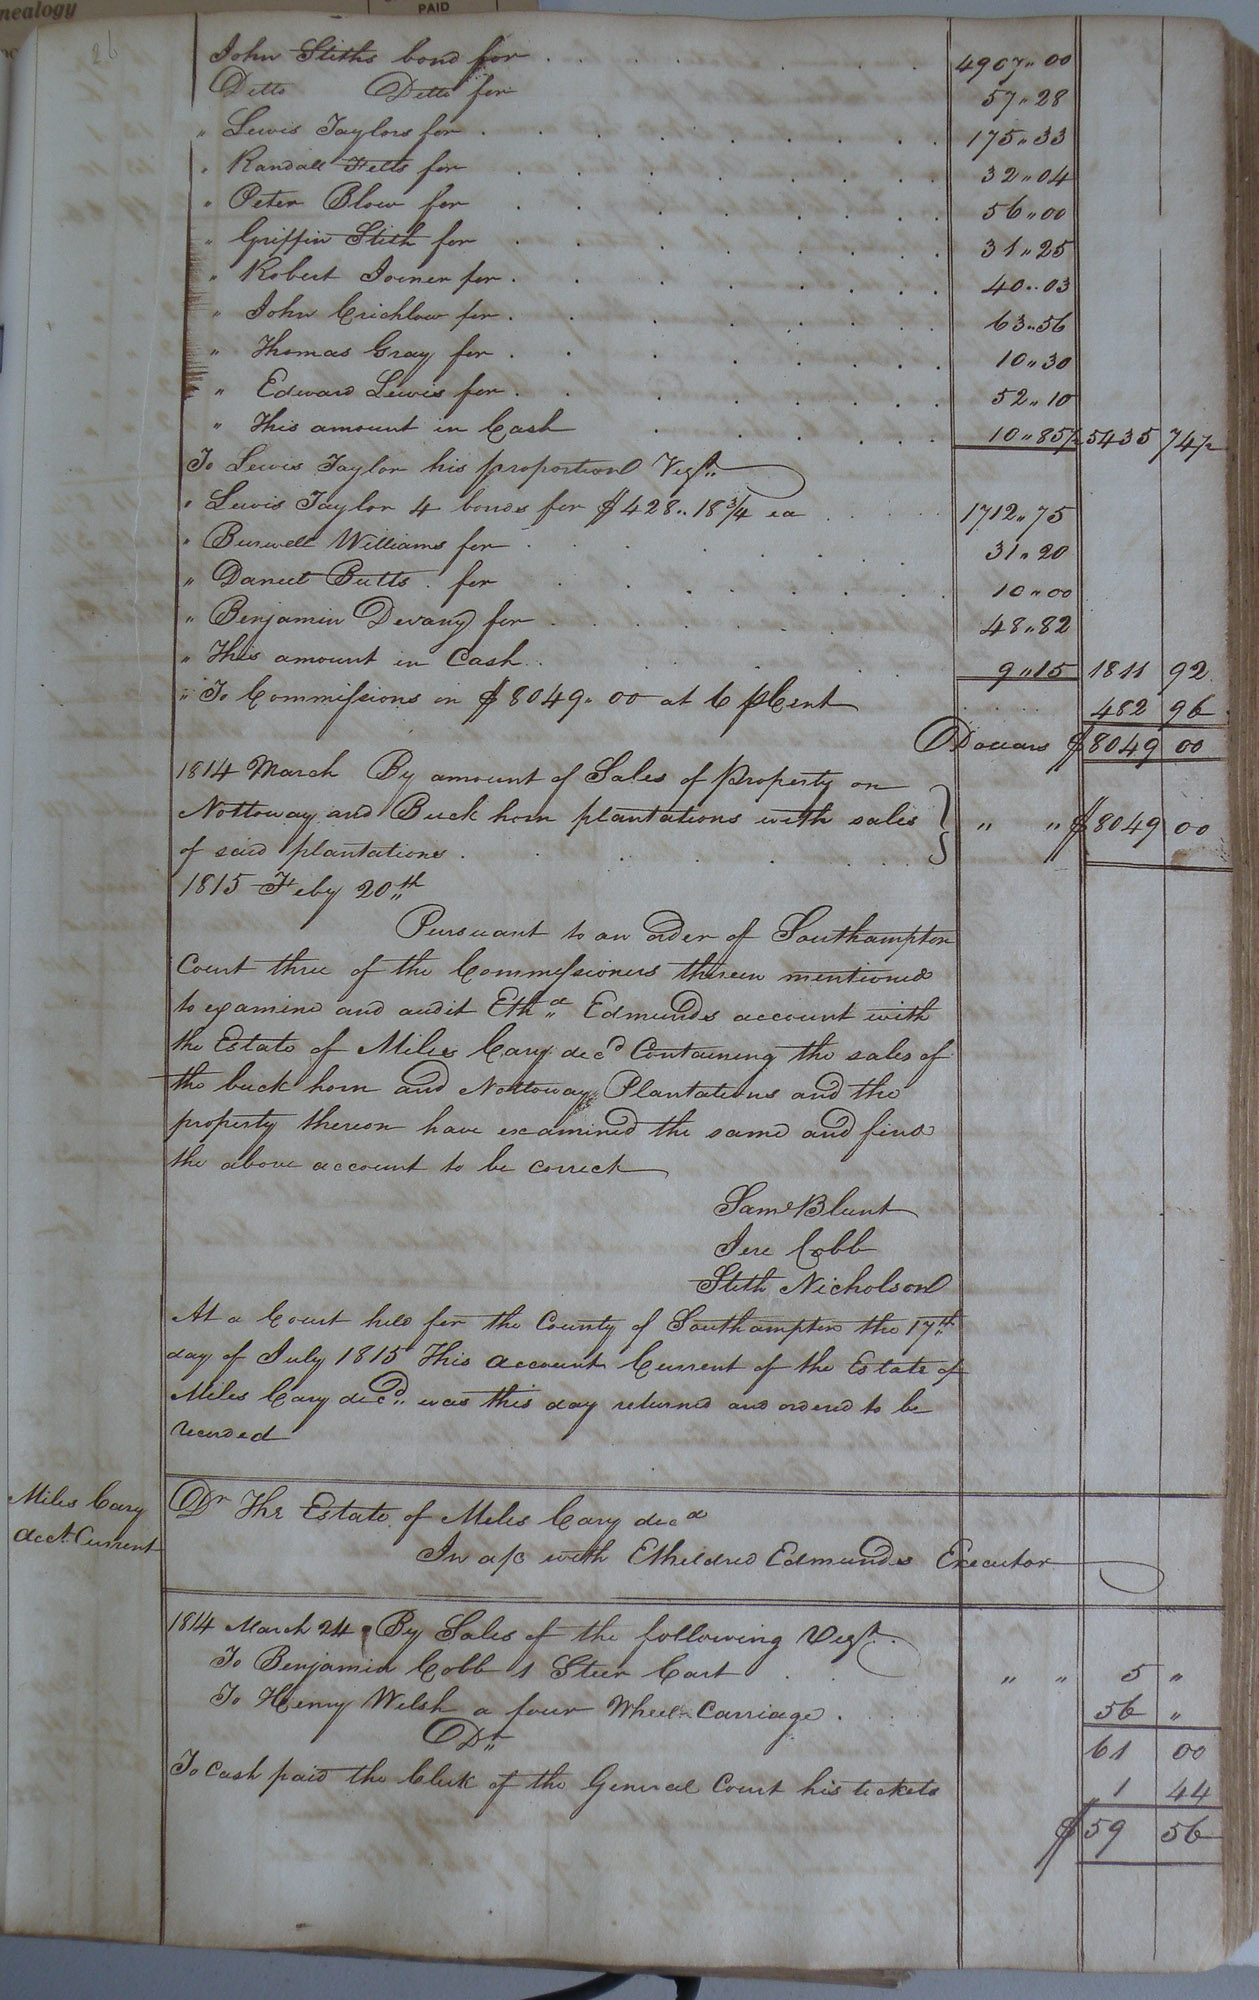 nealogy
PAID
26
John Stiths bond for . . . . . . 4907 " 00
Ditto Ditto for 57 " 28
" Lewis Taylors for . . . . . . 175 " 33
" Randall Felts for . . . . . . 32 " 04
" Peter Blow for . . . . . . 56 " 00
" Griffin Stith for . . . . . . 31 " 25
" Robert Joiner for . . . . . . 40 " 03
" John Crichlow for . . . . . . 63 " 56
" Thomas Gray for . . . . . . 10 " 30
" Edward Lewis for . . . . . . 52 " 10
" This amount in Cash . . . . . 10 " 85½ 5435 74½
To Lewis Taylor his proportion Vizt.
" Lewis Taylor 4 bonds for $428 .. 18¾ ea . . . 1712 " 75
" Burwell Williams for . . . . . 31 " 20
" Daniel Butts . for . . . . . . 10 " 00
" Benjamin Devany for . . . . . 48 " 82
" This amount in Cash . . . . . 9 " 15 1811 92
" To Commissions on $8049 " 00 at 6 pCent 482 96
Dollars $8049 00
1814 March By amount of Sales of Property on
Nottoway and Buck horn plantations with sales } " " $8049 00
of said plantations . . . . .
1815 Feby 20th
Pursuant to an order of Southampton
Court three of the Commissioners therein mentioned
to examine and audit Ethd Edmunds account with
the Estate of Miles Cary decd Containing the sales of
the buck horn and Nottoway Plantations and the
property thereon have examined the same and find
the above account to be correct
Saml Blunt
Jere Cobb
Stith Nicholson
At a Court held for the County of Southampton the 17th
day of July 1815 This account Current of the Estate of
Miles Cary decd was this day returned and ordered to be
recorded
Miles Cary
Acct Current
Dr The Estate of Miles Cary decd
In a/c with Etheldred Edmunds Executor
1814 March 24 By Sales of the following Vizt.
To Benjamin Cobb 1 Steer Cart . . " " 5 "
To Henry Welsh a four Wheel Carriage . 56 "
Dr 61 00
To Cash paid the Clerk of the General Court his tickets 1 44
$59 56